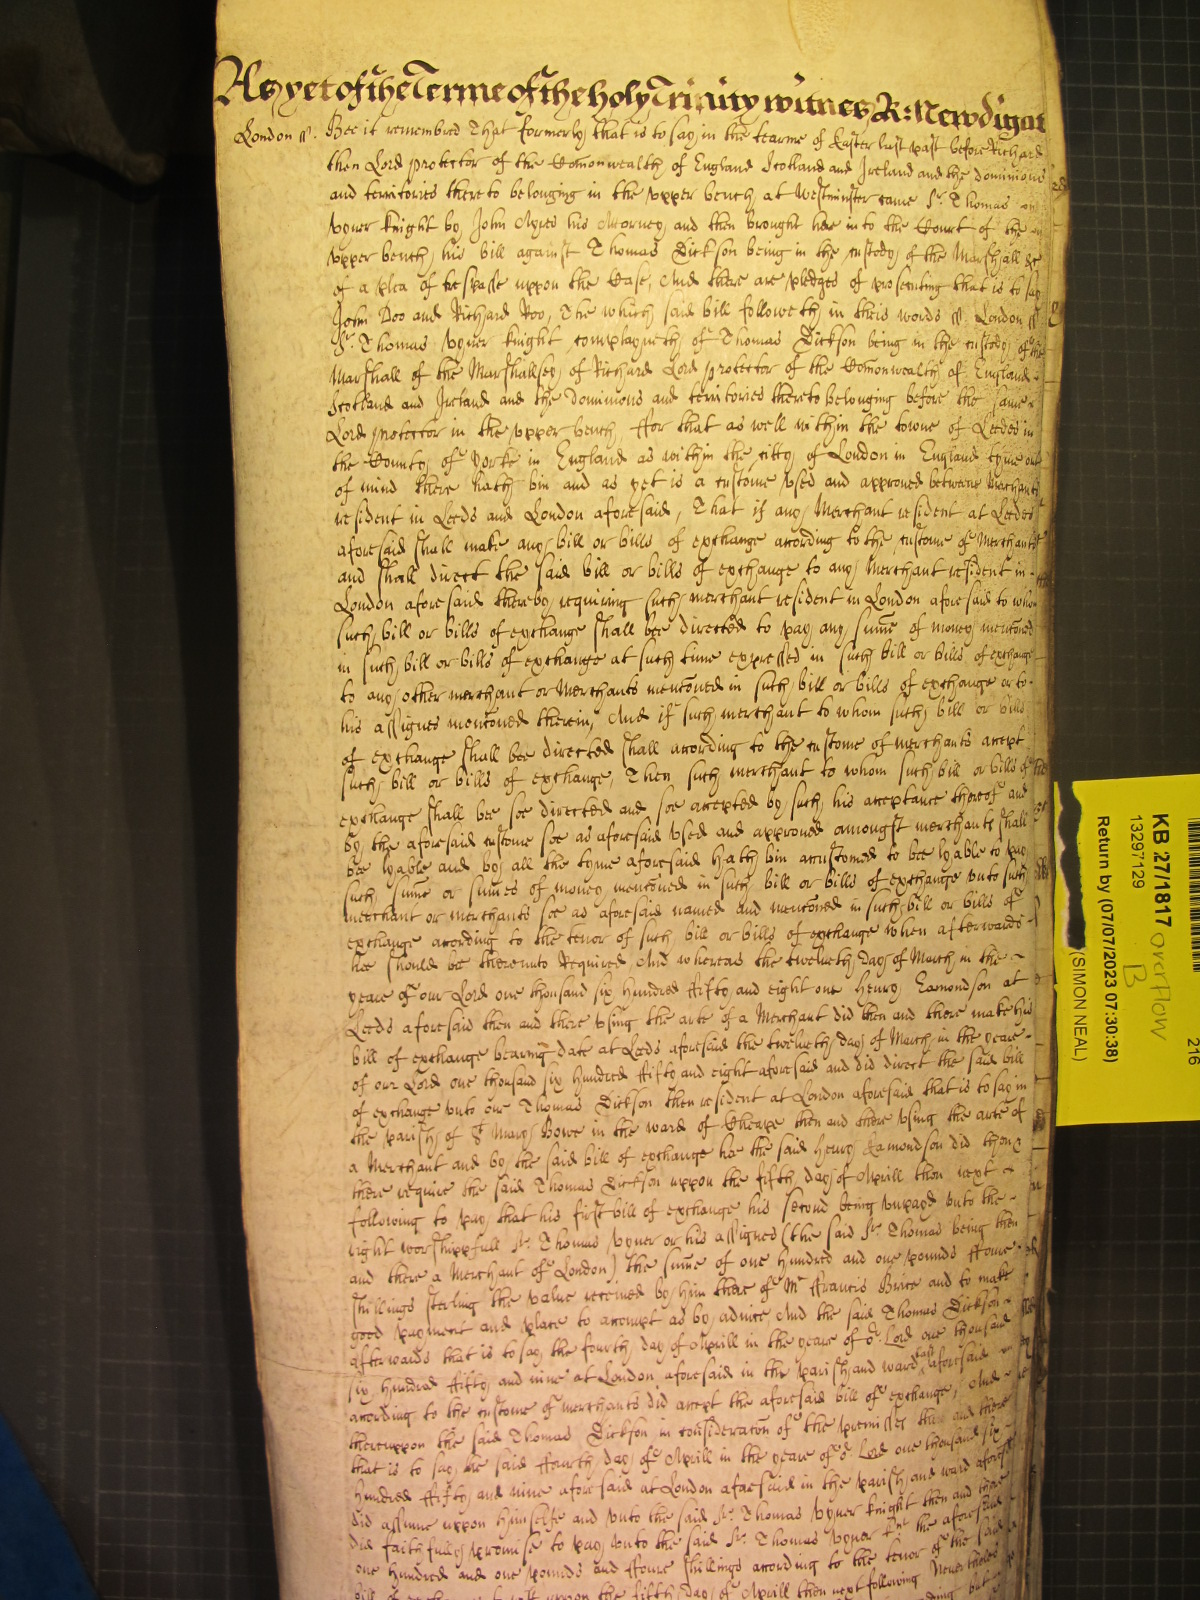 As yet of the Terme of the holy Trinity witnes R: Newdigat
London ss. Bee it remembred That formerly that is to say in the tearme of Easter last past before Richard
then Lord protector of the Comonwealth of England Scotland and Ireland and the dominions
and territories thereto belonging in the upper bench at Westminster came Sr. Thomas
Vyner knight by John Ayres his Attorney and then brought here into the Court of the
upper bench his bill against Thomas Dickson being in the custody of the Marshall &c
of a plea of trespasse uppon the Case, And there are pledges of prosecuting that is to say
John Doo and Richard Roo, The which said bill followeth in theis words ss. London ss
Sr. Thomas Vyner knight complayneth of Thomas Dickson being in the custody of the
Marshall of the Marshallsey of Richard Lord protector of the Comonwealth of England
Scotland and Ireland and the Dominions and territories thereto belonging before the same
Lord protector in the upper bench, ffor that as well within the towne of Leedes in
the County of Yorke in England as within the citty of London in England tyme out
of mind there hath bin and as yet is a custome used and approved betweene Merchants
resident in Leeds and London aforesaid, That if any Merchant resident at Leedes
aforesaid shall make any bill or bills of exchange according to the custome of Merchants
and shall direct the said bill or bills of exchange to any Merchant resident in
London aforesaid thereby requiring such merchant resident in London aforesaid to whom
such bill or bills of exchange shall bee directed to pay any sume of money mentoned
in such bill or bills of exchange at such time expressed in such bill or bills of exchange
to any other merchant or Merchants mentoned in such bill or bills of exchange or to
his assignes mentoned therein, And if such merchant to whom such bill or bills
of exchange shall bee directed shall according to the custome of merchants accept
such bill or bills of exchange, Then such merchant to whom such bill or bills of
exchange shall bee soe directed and soe accepted by such his acceptance thereof and
by the aforesaid custome soe as aforesaid used and approved amongst merchants shall
bee lyable and by all the tyme aforesaid hath bin accustomed to bee lyable to pay
such sume or sumes of money mentoned in such bill or bills of exchange unto such
merchant or merchants soe as aforesaid named and mentoned in such bill or bills of
exchange according to the tenor of such bill or bills of exchange when afterwards
hee should be thereunto Required, And whereas the twelveth day of March in the
yeare of our Lord one thousand six hundred fifty and eight one Henry Eamondson at
Leeds aforesaid then and there using the arte of a Merchant did then and there make his
bill of exchange bearing date at Leeds aforesaid the twelveth day of March in the yeare
of our Lord one thousand six hundred fifty and eight aforesaid and did direct the said bill
of exchange unto one Thomas Dickson then resident at London aforesaid that is to say in
the parish of St Mary Bowe in the ward of Cheape then and there using the arte of
a Merchant and by the said bill of exchange hee the said Henry Eamondson did then &
there require the said Thomas Dickson uppon the fifth day of Aprill then next
following to pay that his first bill of exchange his second being unpayd unto the
right worshippfull Sr. Thomas Vyner or his assignes (the said Sr. Thomas being then
and there a Merchant of London) the sume of one hundred and one pounds ffoure
shillings sterling the value received by him there of Mr ffrancis Brice and to make
good payment and place to accompt as by advice And the said Thomas Dickson
afterwards that is to say the fourth day of Aprill in the yeare of or Lord one thousand
six hundred fifty and nine at London aforesaid in the parish and ward last aforesaid
according to the custome of merchants did accept the aforesaid bill of exchange, And
thereuppon the said Thomas Dickson in consideration of the premisses then and there
that is to say the said ffourth day of Aprill in the yeare of or Lord one thousand six
hundred fifty and nine aforesaid at London aforesaid in the parish and ward aforesd
did assume uppon himselfe and unto the said Sr. Thomas Vyner knight then and there
did faithfully promise to pay unto the said Sr. Thomas Vyner knt the aforesaid
one hundred and one pounds and ffoure shillings according to the tenor of the said
bill of uppon the fifth day of Aprill then next following Neverthelesse
KB 27/1817 overflow
B
13297129
Return by (07/07/2023 07:30:38)
(SIMON NEAL)
216